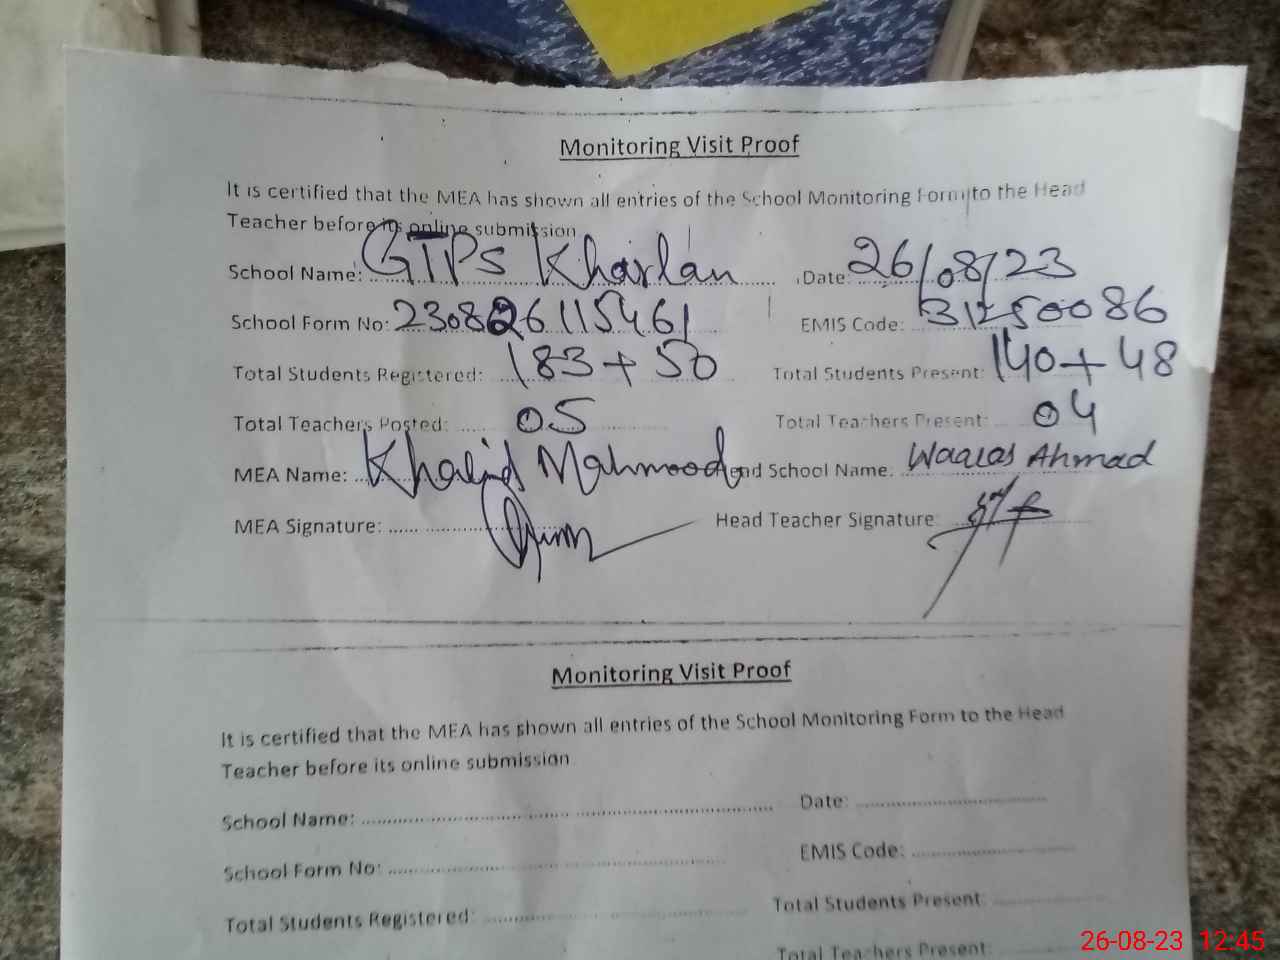 Monitoring Visit Proof
It is certified that the MEA has shown all entries of the School Monitoring Form to the Head
Teacher before its online submission
School Name: GTPS Kharlan Date: 26/08/23
School Form No: 230826115461 EMIS Code: 31250086
Total Students Registered: 183+50 Total Students Present: 140+48
Total Teachers Posted: 05 Total Teachers Present: 04
MEA Name: Khalid Mahmood Head School Name: Ahmad
MEA Signature: Head Teacher Signature:
Monitoring Visit Proof
It is certified that the MEA has shown all entries of the School Monitoring Form to the Head
Teacher before its online submission
School Name: Date:
School Form No: EMIS Code:
Total Students Registered: Total Students Present:
Total Teachers Present:
26-08-23 12:45